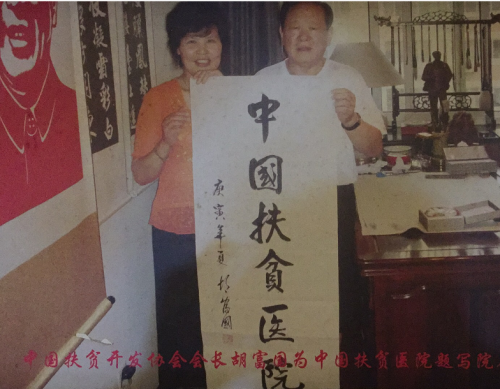 中国扶贫医院
庚寅年夏 胡富国
中国扶贫开发协会会长胡富国为中国扶贫医院题写院